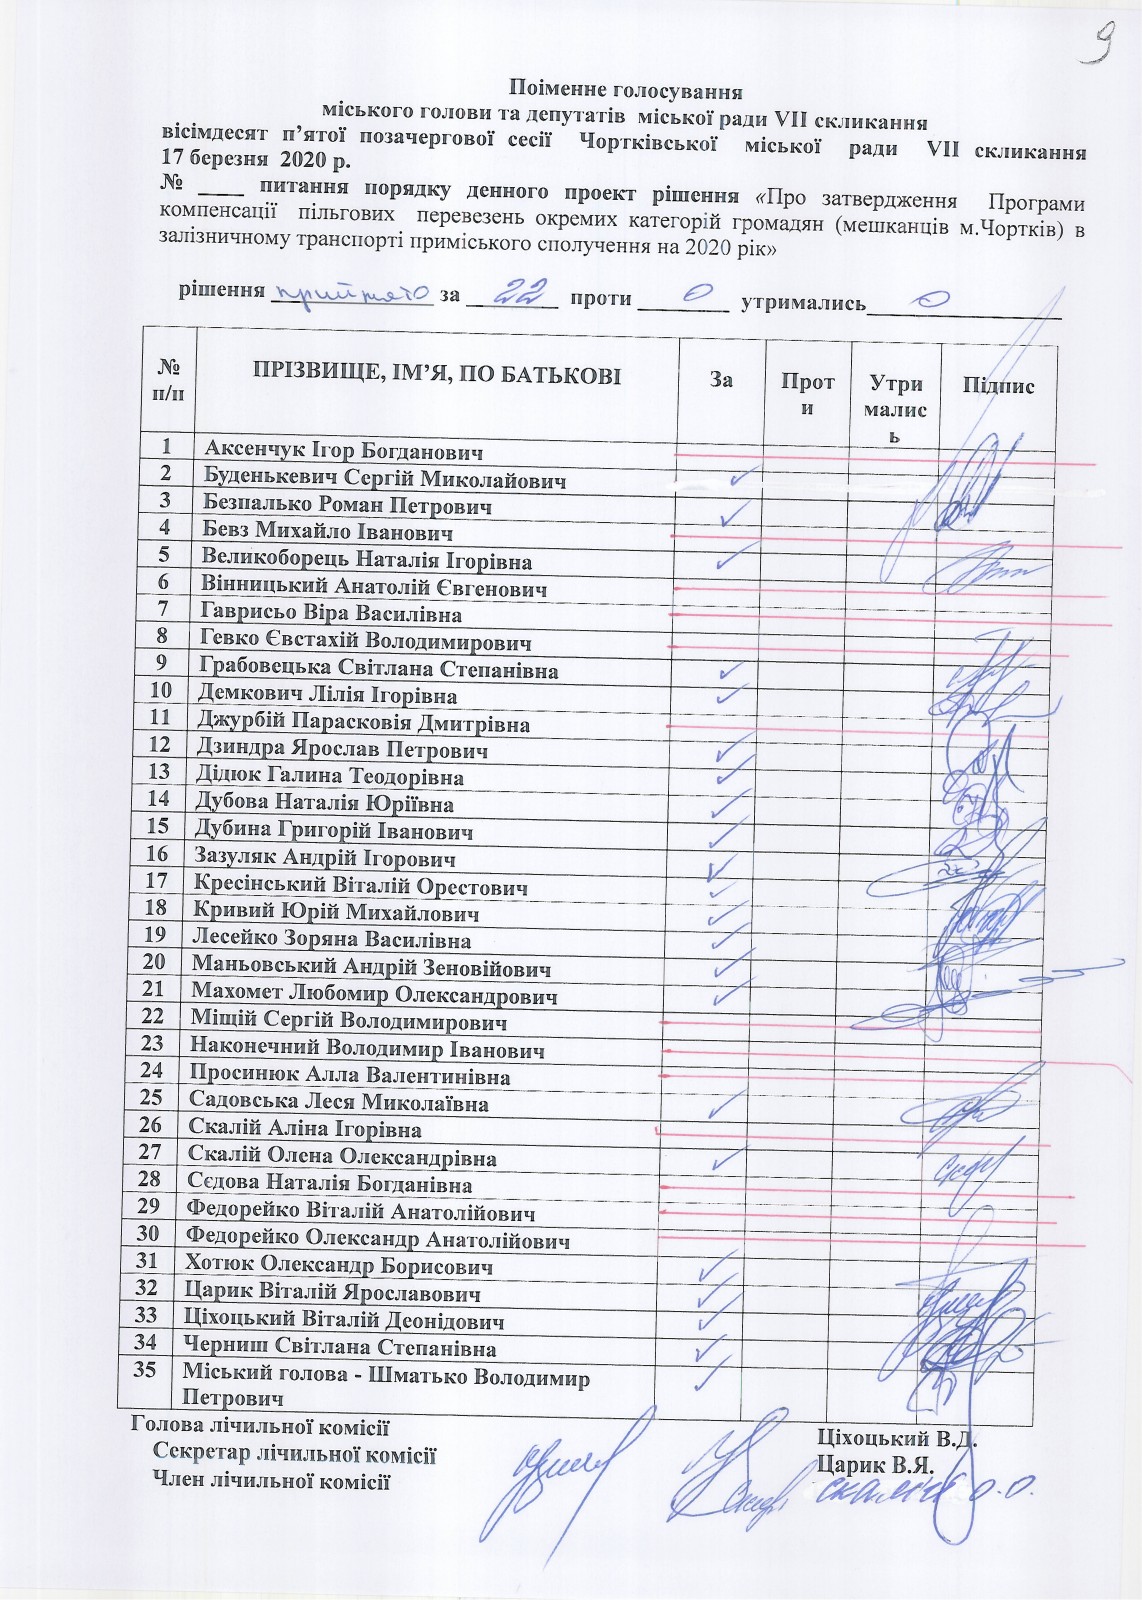 9
Поіменне голосування
міського голови та депутатів міської ради VII скликання
вісімдесят п’ятої позачергової сесії Чортківської міської ради VII скликання
17 березня 2020 р.
№ ____ питання порядку денного проект рішення «Про затвердження Програми
компенсації пільгових перевезень окремих категорій громадян (мешканців м.Чортків) в
залізничному транспорті приміського сполучення на 2020 рік»
рішення прийнято за 22 проти 0 утримались 0
№ п/п ПРІЗВИЩЕ, ІМ’Я, ПО БАТЬКОВІ За Проти Утрималис ь Підпис
1 Аксенчук Ігор Богданович
2 Буденькевич Сергій Миколайович ✓
3 Безпалько Роман Петрович ✓
4 Бевз Михайло Іванович
5 Великоборець Наталія Ігорівна ✓
6 Вінницький Анатолій Євгенович
7 Гаврисьо Віра Василівна
8 Гевко Євстахій Володимирович
9 Грабовецька Світлана Степанівна ✓
10 Демкович Лілія Ігорівна ✓
11 Джурбій Парасковія Дмитрівна
12 Дзиндра Ярослав Петрович ✓
13 Дідюк Галина Теодорівна ✓
14 Дубова Наталія Юріївна ✓
15 Дубина Григорій Іванович ✓
16 Зазуляк Андрій Ігорович ✓
17 Кресінський Віталій Орестович ✓
18 Кривий Юрій Михайлович ✓
19 Лесейко Зоряна Василівна ✓
20 Маньовський Андрій Зеновійович ✓
21 Махомет Любомир Олександрович ✓
22 Міщій Сергій Володимирович
23 Наконечний Володимир Іванович
24 Просинюк Алла Валентинівна
25 Садовська Леся Миколаївна ✓
26 Скалій Аліна Ігорівна
27 Скалій Олена Олександрівна ✓
28 Сєдова Наталія Богданівна
29 Федорейко Віталій Анатолійович
30 Федорейко Олександр Анатолійович
31 Хотюк Олександр Борисович ✓
32 Царик Віталій Ярославович ✓
33 Ціхоцький Віталій Деонідович ✓
34 Черниш Світлана Степанівна ✓
35 Міський голова - Шматько Володимир ✓
Петрович
Голова лічильної комісії Ціхоцький В.Д.
Секретар лічильної комісії Царик В.Я.
Член лічильної комісії Скалій О.О.